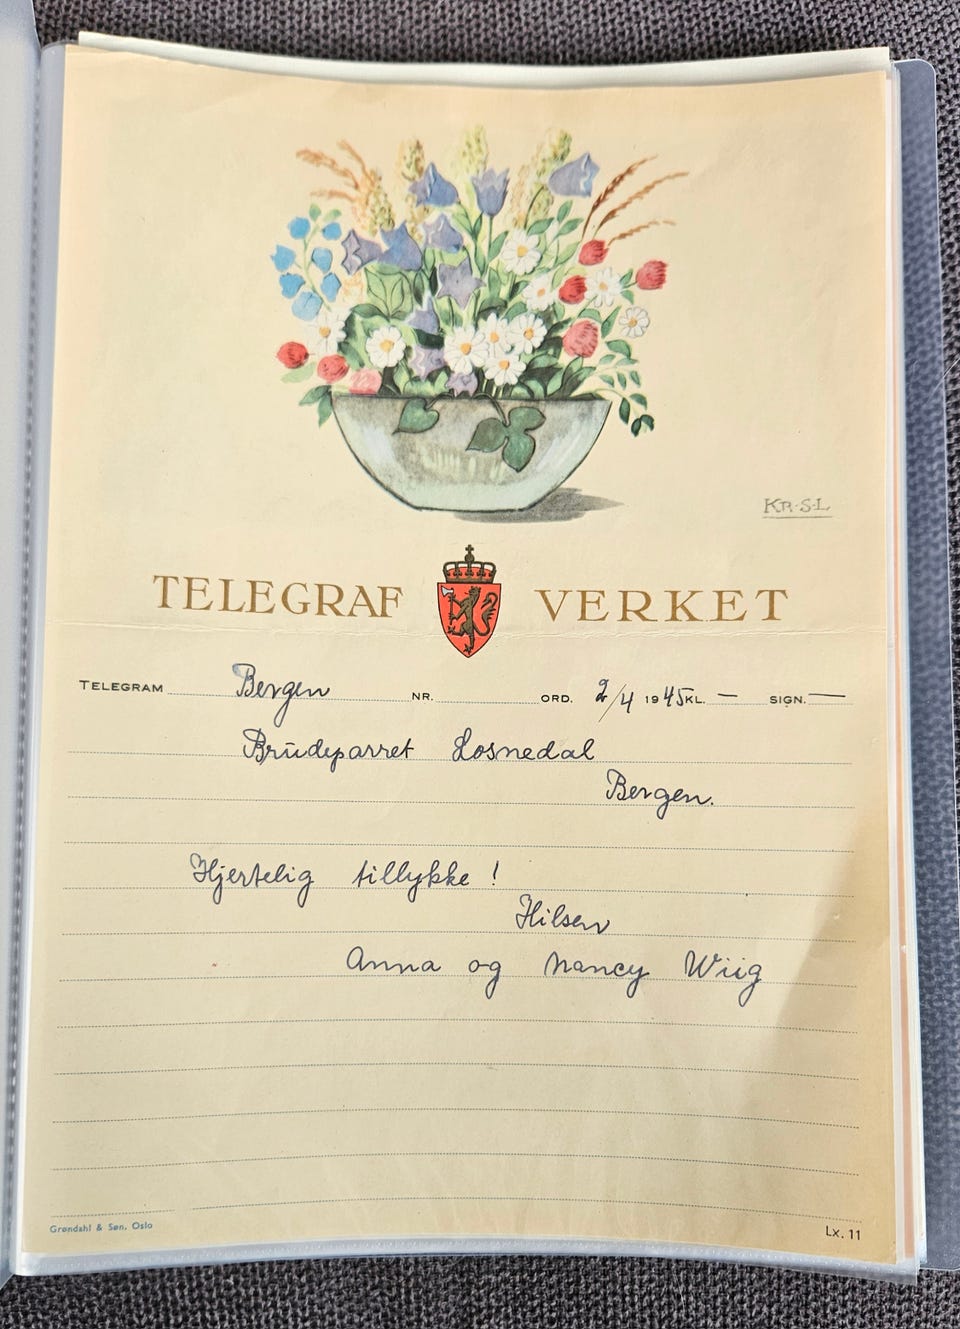 KR. S-L
TELEGRAF VERKET
TELEGRAM Bergen NR. ORD. 2/4 1945 KL. — SIGN. —
Brudeparret Losnedal
Bergen.
Hjertelig tillykke!
Hilsen
Anna og Nancy Wiig
Grøndahl & Søn, Oslo
Lx. 11